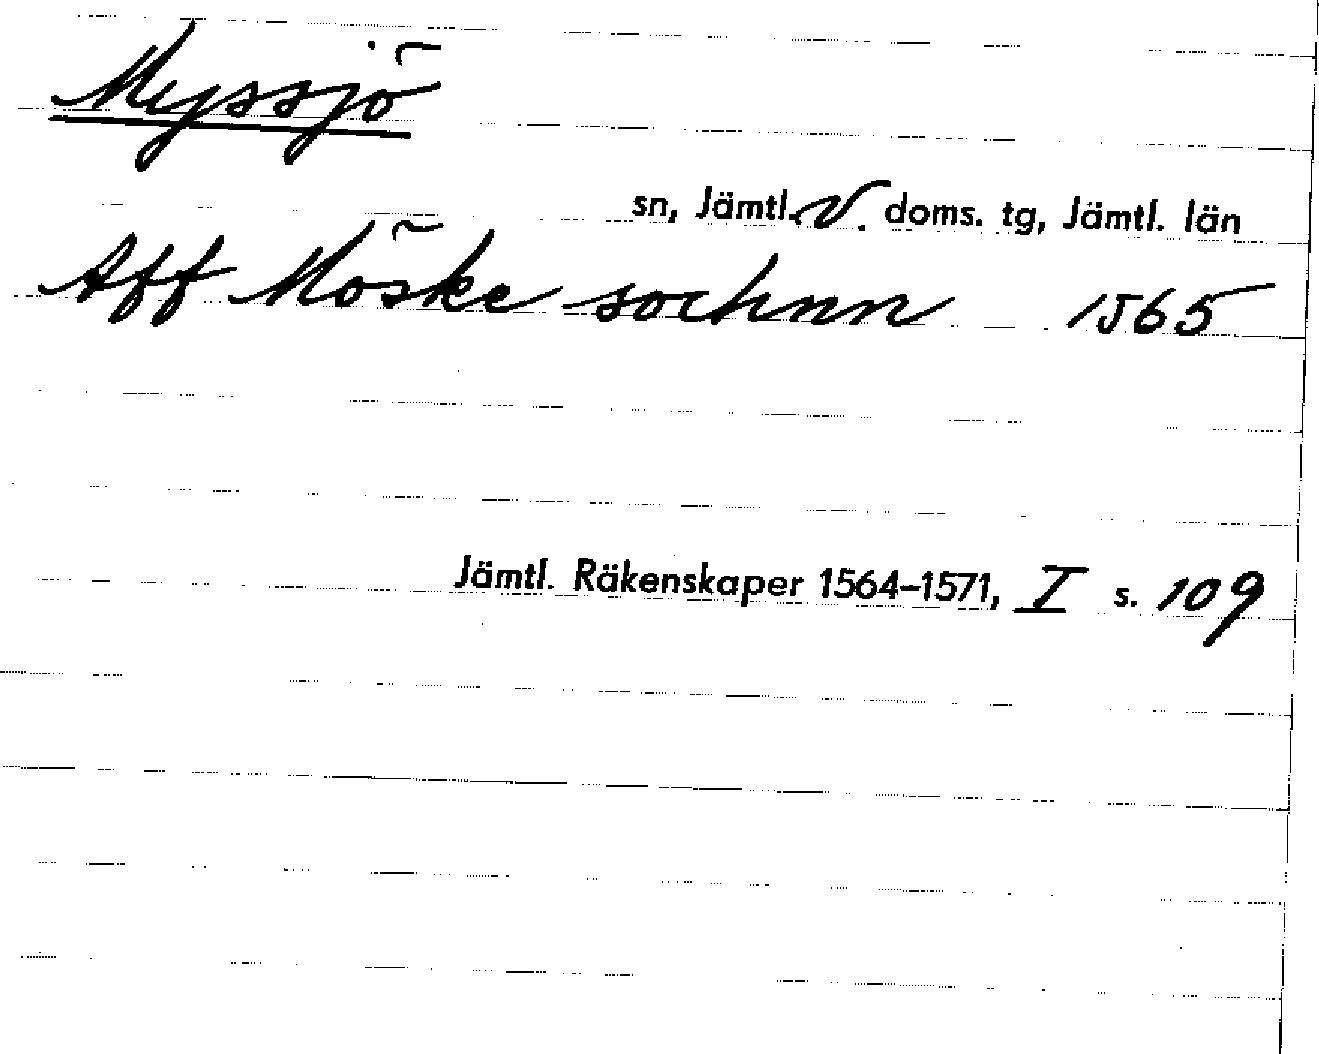 Myssjö
sn, Jämtl. V. doms. tg, Jämtl. län
Aff Möske sochnn 1565
Jämtl. Räkenskaper 1564–1571, I s. 109